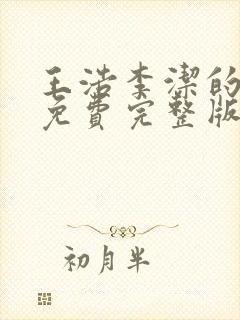 王浩李潔的
免費完整版
初月半